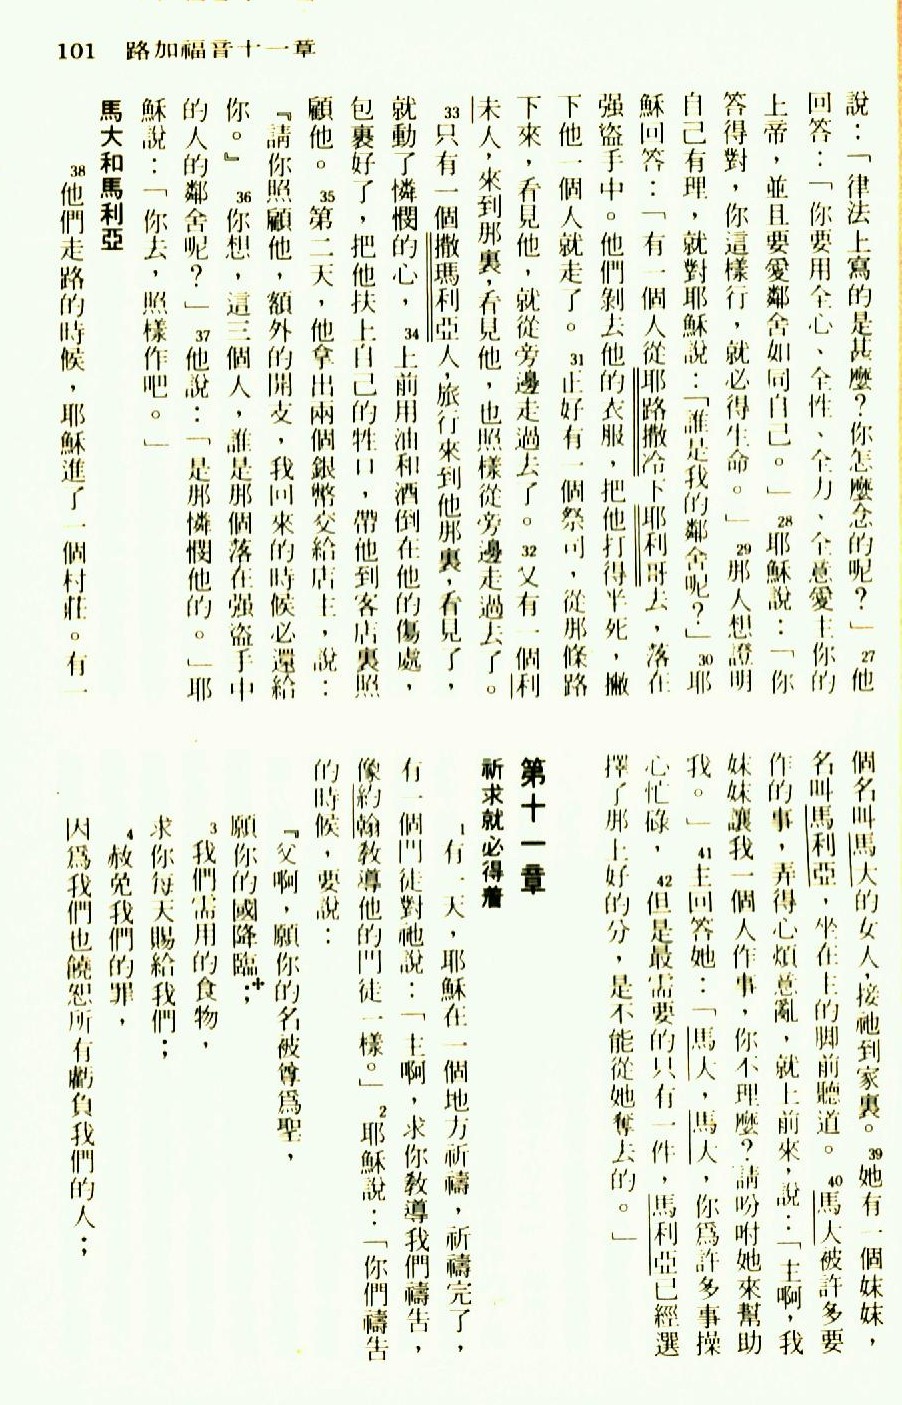 101 路加福音十一章
說：「律法上寫的是甚麼？你怎麼念的呢？」27他
回答：「你要用全心、全性、全力、全意愛主你的
上帝，並且要愛鄰舍如同自己。」28耶穌說：「你
答得對，你這樣行，就必得生命。」29那人想證明
自己有理，就對耶穌說：「誰是我的鄰舍呢？」30耶
穌回答：「有一個人從耶路撒冷下耶利哥去，落在
强盜手中。他們剝去他的衣服，把他打得半死，撇
下他一個人就走了。31正好有一個祭司，從那條路
下來，看見他，就從旁邊走過去了。32又有一個利
未人，來到那裏，看見他，也照樣從旁邊走過去了。
33只有一個撒瑪利亞人，旅行來到他那裏，看見了，
就動了憐憫的心，34上前用油和酒倒在他的傷處，
包裹好了，把他扶上自己的牲口，帶他到客店裏照
顧他。35第二天，他拿出兩個銀幣交給店主，說：
『請你照顧他，額外的開支，我回來的時候必還給
你。』36你想，這三個人，誰是那個落在强盜手中
的人的鄰舍呢？」37他說：「是那憐憫他的。」耶
穌說：「你去，照樣作吧。」
馬大和馬利亞
38他們走路的時候，耶穌進了一個村莊。有一
個名叫馬大的女人，接祂到家裏。39她有一個妹妹，
名叫馬利亞，坐在主的脚前聽道。40馬大被許多要
作的事，弄得心煩意亂，就上前來，說：「主啊，我
妹妹讓我一個人作事，你不理麼？請吩咐她來幫助
我。」41主回答她：「馬大，馬大，你爲許多事操
心忙碌，42但是最需要的只有一件，馬利亞已經選
擇了那上好的分，是不能從她奪去的。」
第十一章
祈求就必得着
1有一天，耶穌在一個地方祈禱，祈禱完了，
有一個門徒對祂說：「主啊，求你教導我們禱告，
像約翰教導他的門徒一樣。」2耶穌說：「你們禱告
的時候，要說：
『父啊，願你的名被尊爲聖，
願你的國降臨；+
3我們需用的食物，
求你每天賜給我們；
4赦免我們的罪，
因爲我們也饒恕所有虧負我們的人；